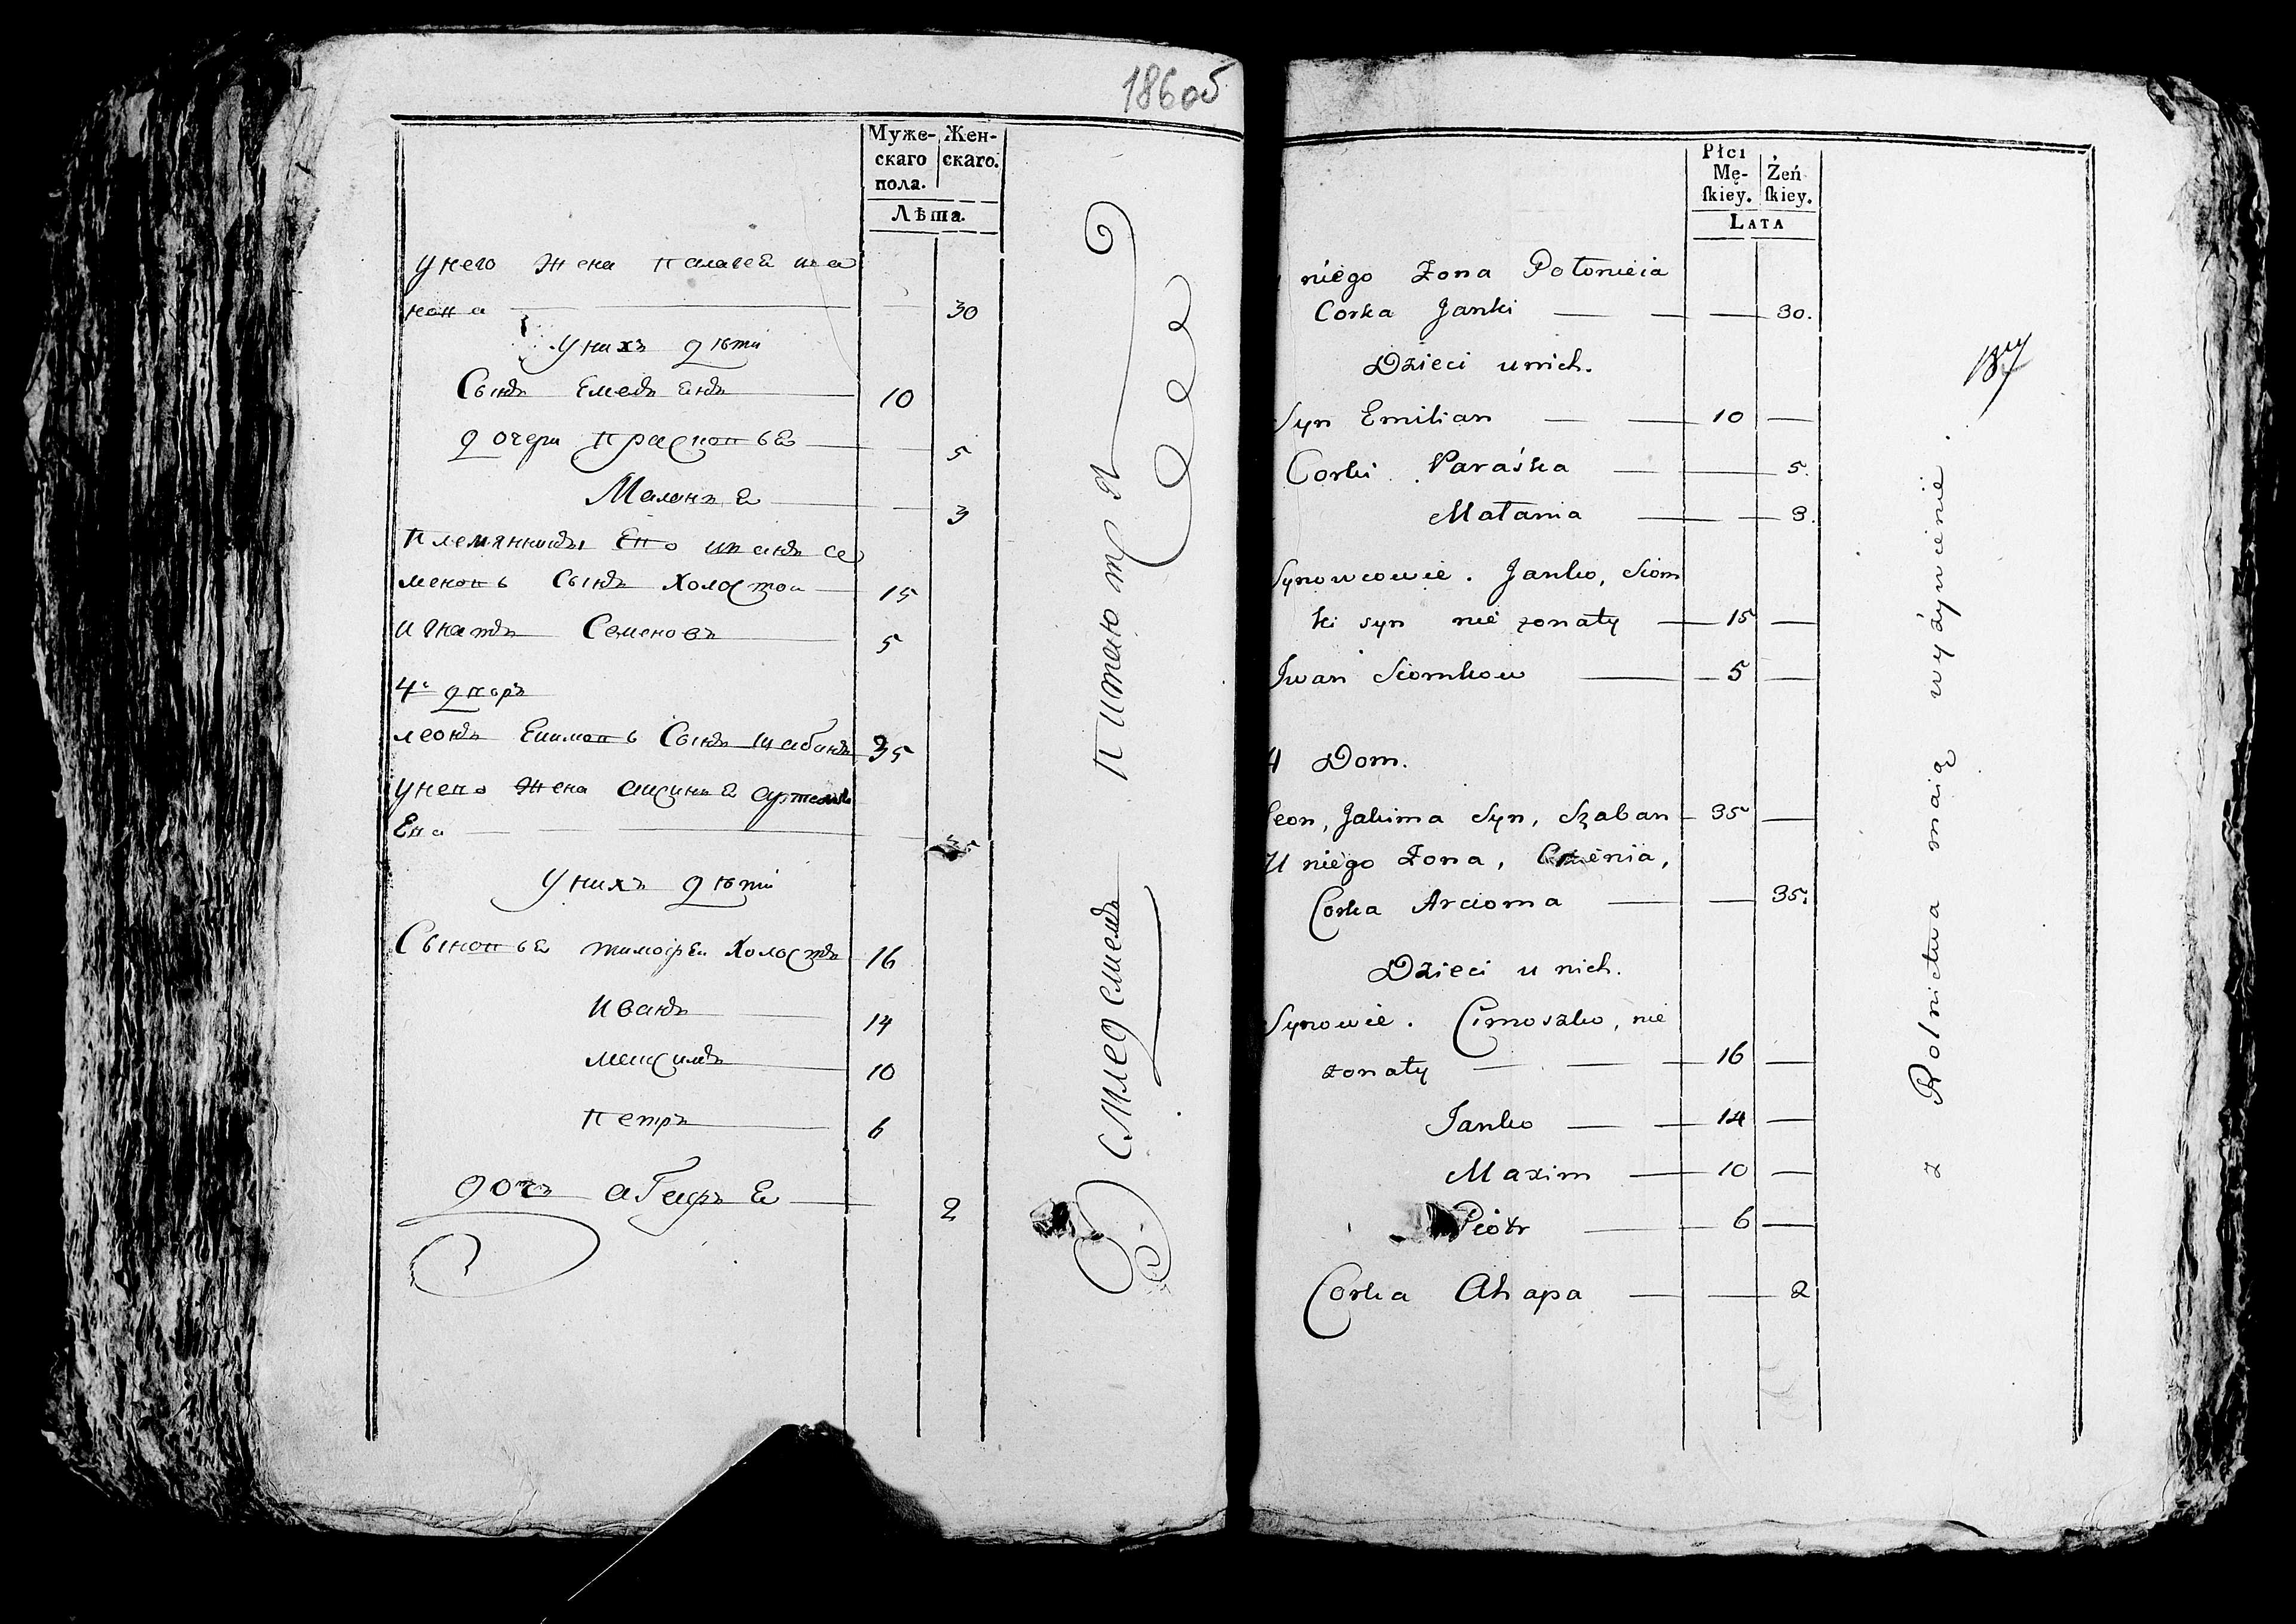 186об
Муже- Жен-
скаго скаго.
пола.
Лѣта.
унего жена палагея ива
нова 30
уних дѣти
Сынъ Емельянъ 10
дочери Прасковья 5
Маланья 3
Племянники Его иванъ се
меновъ Сынъ холостои 15
Семеновъ 5
4й дворъ
леонъ Сынъ шабанъ 35
унего жена
Ева 35
уних дѣти
Сыновья тимофеи холостъ 16
Иванъ 14
максимъ 10
петръ 6
дочь агафья 2
Питаются
Płci
Mę- Żeń
skiey. skiey.
LATA
niego Żona Połonieia
Corka Janki 30.
Dzieci unich.
Syn Emilian 10
Corki Paraśka 5.
Małania 3.
Synowcowie. Janko, Siom
ki syn nie zonaty 15
Iwan Siomkow 5
4 Dom.
Leon, Jakima Syn, Szaban 35
U niego Żona,
Corka Arcioma 35.
Dzieci u nich.
Synowie. Cimoszko, nie
zonaty 16
Janko 14
Maxim 10
Piotr 6
Corka Ahapa 2
z Rolnictwa maią wyżywienie.
187